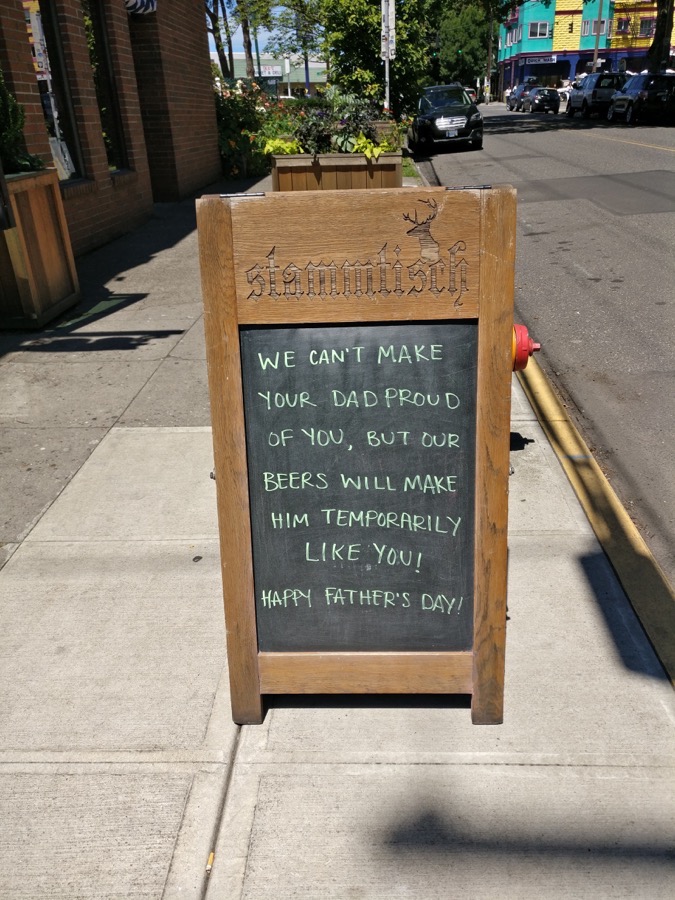 stammtisch
WE CAN'T MAKE
YOUR DAD PROUD
OF YOU, BUT OUR
BEERS WILL MAKE
HIM TEMPORARILY
LIKE YOU!
HAPPY FATHER'S DAY!